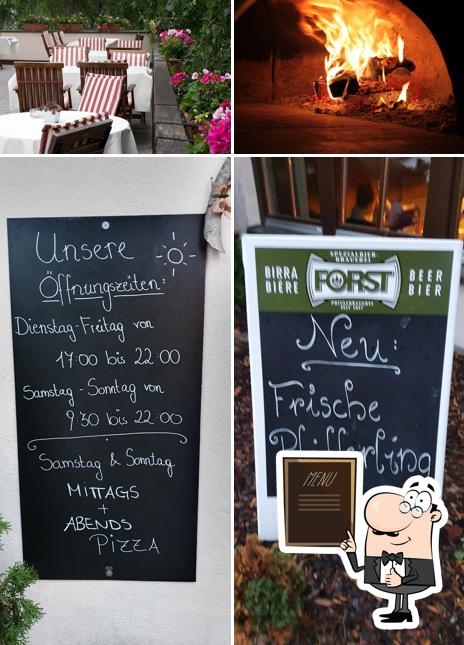 Unsere
Öffnungszeiten:
Dienstag-Freitag von
17:00 bis 22:00
Samstag - Sonntag von
9:30 bis 22:00
Samstag & Sonntag
MITTAGS
+
ABENDS
PIZZA
SPEZIALBIER
BRAUEREI
BIRRA BEER
BIÈRE BIER
FORST
PRIVATBRAUEREI
SEIT 1857
Neu:
Frische
Pfifferling
MENU